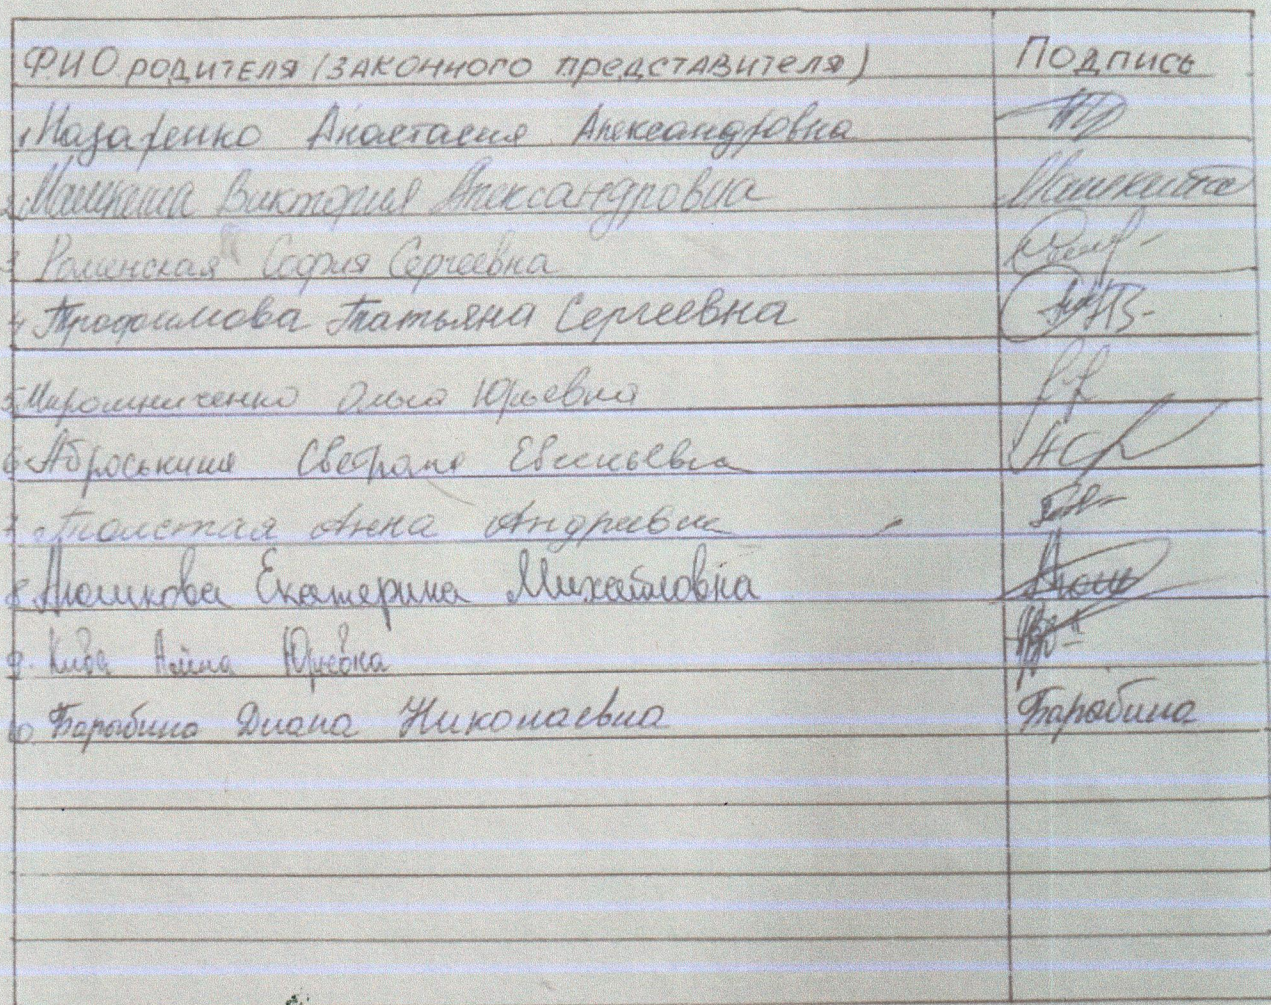 ФИО родителя (законного представителя) Подпись
1. Назаренко Анастасия Александровна
2. Виктория Александровна
3. Роменская София Сергеевна
4. Трофимова Татьяна Сергеевна
5. Мирошниченко Ольга Юрьевна
6. Аброськина Светлана Евгеньевна
7. Толстая Анна Андреевна
8. Анюшкова Екатерина Михайловна
9. Кива Алина Юрьевна
10. Барабина Диана Николаевна Барабина